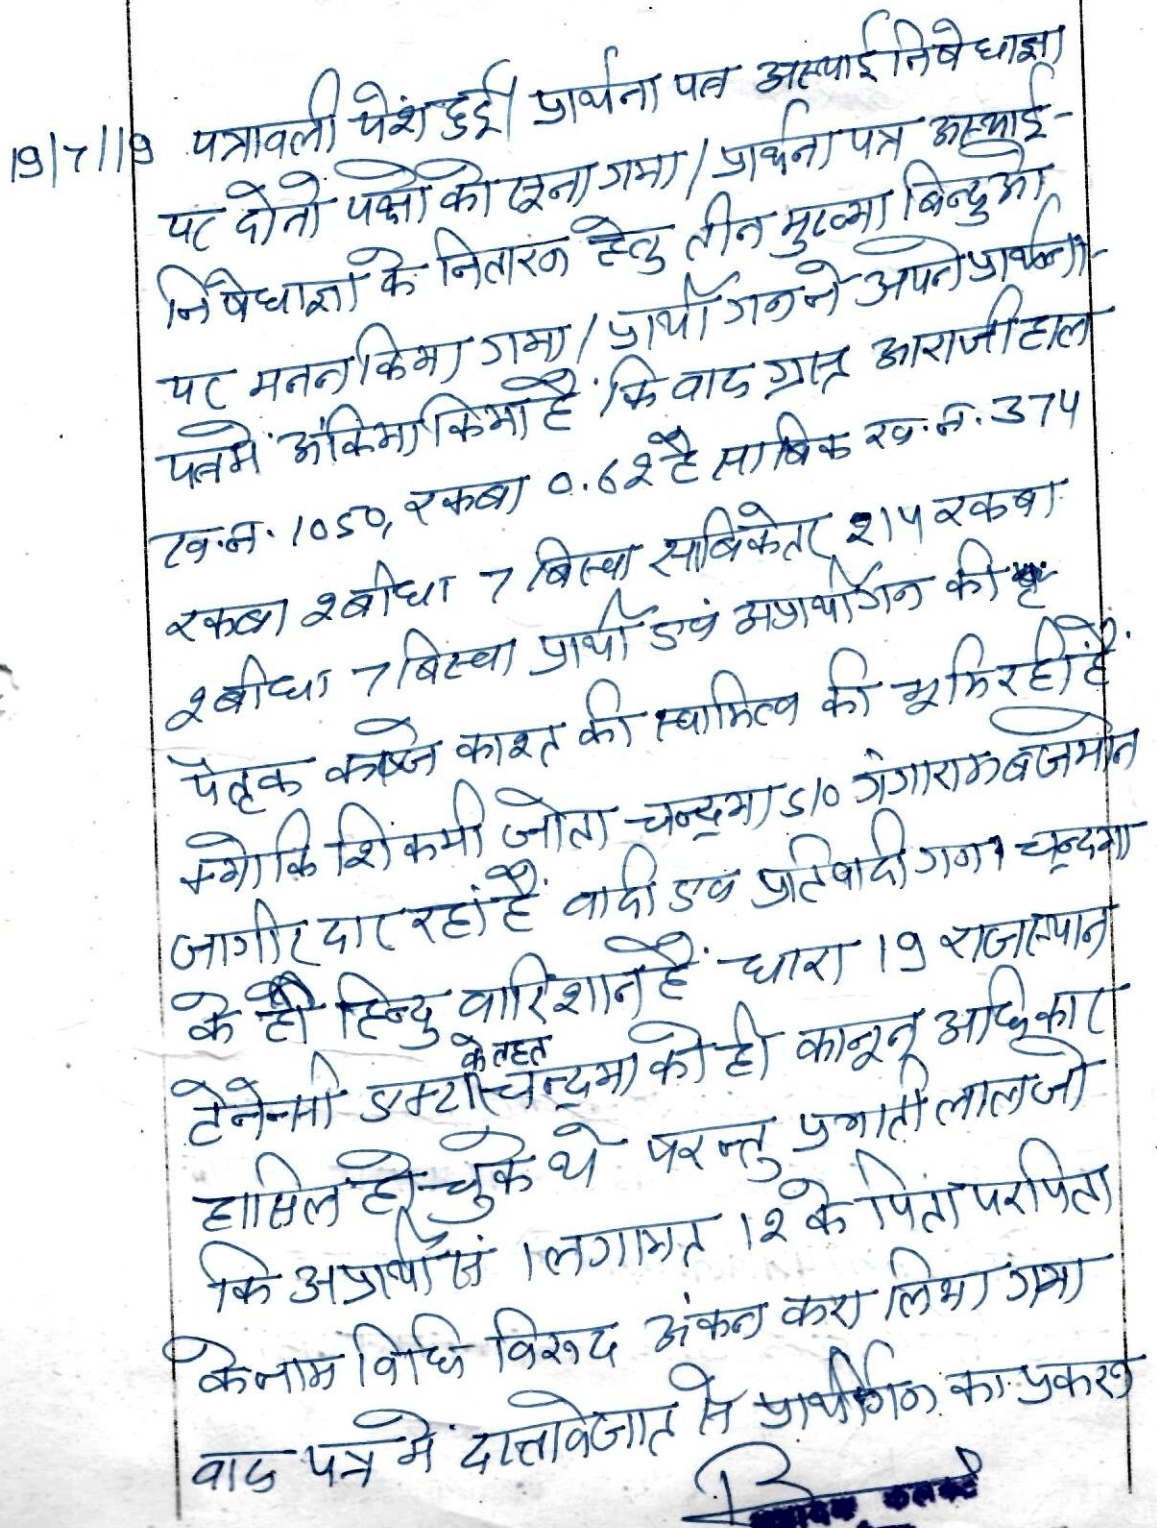 19/7/19 पत्रावली पेश हुई। प्रार्थना पत्र अस्थाई निषेधाज्ञा
पर दोनो पक्षो को सुना गया / प्रार्थना पत्र अस्थाई-
निषेधाज्ञा के निस्तारन हेतु तीन मुख्या बिन्दुओ
पर मनन किया गया / प्रार्थी गनने अपने प्रार्थना-
पत्रमें अंकिमा किया है कि वाद ग्रस्त आराजी हाल
ख.न. 1050, रकबा 0.62 है साबिक ख.न. 374
रकबा 2 बीघा 7 बिस्वा साबिकेतर 214 रकबा
2 बीघा 7 बिस्वा प्रार्थी एवं अप्रार्थीगन की
पेतृक कब्जे काश्त की स्वामित्व की भूमि रही है
क्योकि शिकमी जोता चन्द्रमा S/O गंगाराम बजमीन
जागीरदार रहा है वादी एव प्रतिवादी गन चन्द्रमा
के ही हिन्दु वारिशान है धारा 19 राजस्थान
टेनेन्सी एक्ट के तहत चन्द्रमा को ही कानूनू अधिकार
हासिल हो चुके थे परन्तु प्रभाती लाल जो
कि अप्रार्थी सं 1 लगायत 12 के पिता परपिता
के नाम विधि विरुद अंकन करा लिया गया
वाद पत्र में दस्तावेजात से प्रार्थीगन का प्रकरन
सहायक कलक्टर